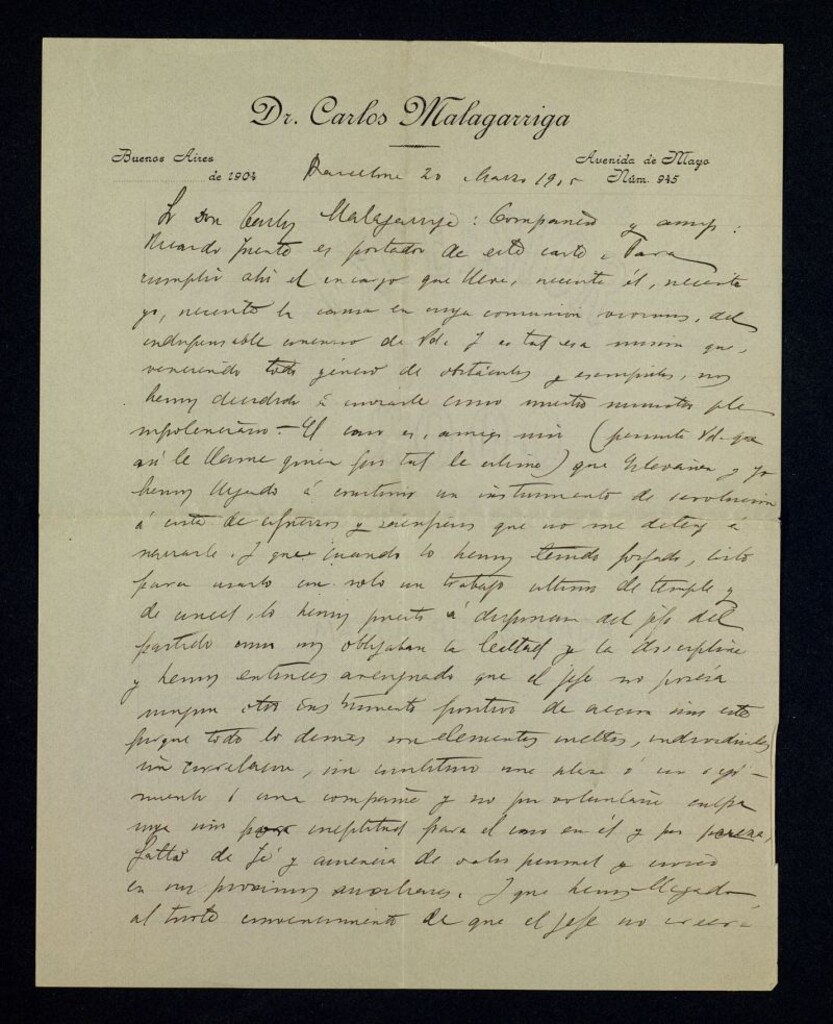 Dr. Carlos Malagarriga
Buenos Aires
de 1904
Avenida de Mayo
Núm. 945
Barcelona 20 Marzo 1905
Sr Don Carlos Malagarriga: Compañero y amigo:
Ricardo Fuente es portador de esta carta. Para
cumplir ahí el encargo que lleva, necesita él, necesito
yo, necesita la causa en cuya comunión vivimos, del
indispensable concurso de Vd. Y es tal esa misión que,
venciendo todo género de obstáculos y, nos
hemos decidido á enviarle como nuestro ministro ple
nipotenciario.- El caso es, amigo mío (permita Vd. que
así le llame quien por tal le estima) que Estévanez y yo
hemos llegado á construir un instrumento de revolución
á costa de esfuerzos y que no me detengo á
narrarle. Y que cuando lo hemos tenido forjado, listo
para usarlo con solo un trabajo último de temple y
de cincel, lo hemos puesto á disposición del jefe del
partido como nos obligaban la lealtad y la disciplina
y hemos entonces averiguado que el jefe no poseía
ningún otro instrumento positivo de acción sino este
porque todo lo demás son elementos sueltos, individuales
sin correlación, sin constituir una plaza ó un regi-
miento ó una compañía y no por voluntaria culpa
suya sino por ineptitud para el caso en él y por
falta de fé y ausencia de valor personal y
en sus próximos auxiliares. Y que hemos llegado
al triste convencimiento de que el jefe no creerá